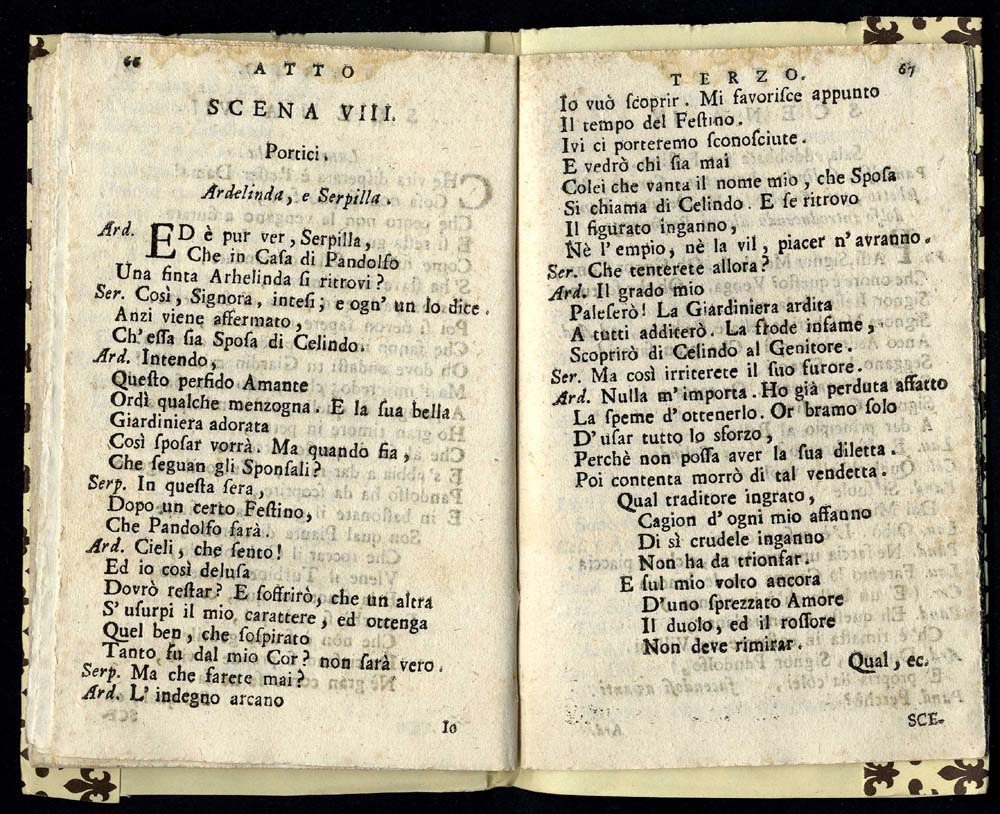 66
ATTO
SCENA VIII.
Portici.
Ardelinda, e Serpilla.
Ard. ED è pur ver, Serpilla,
Che in Caſa di Pandolfo
Una finta Arhelinda ſi ritrovi?
Ser. Così, Signora, inteſi; e ogn' un lo dice.
Anzi viene affermato,
Ch' eſſa ſia Spoſa di Celindo.
Ard. Intendo,
Queſto perfido Amante
Ordì qualche menzogna. E la ſua bella
Giardiniera adorata
Così ſpoſar vorrà. Ma quando fia,
Che ſeguan gli Sponſali?
Serp. In queſta ſera,
Dopo un certo Feſtino,
Che Pandolfo farà.
Ard. Cieli, che ſento!
Ed io così deluſa
Dovrò reſtar? E ſoffrirò, che un altra
S' uſurpi il mio carattere, ed ottenga
Quel ben, che ſoſpirato
Tanto fu dal mio Cor? non ſarà vero.
Serp. Ma che farete mai?
Ard. L' indegno arcano
Io
TERZO.
67
Io vuò ſcoprir. Mi favoriſce appunto
Il tempo del Feſtino.
Ivi ci porteremo ſconoſciute.
E vedrò chi ſia mai
Colei che vanta il nome mio, che Spoſa
Si chiama di Celindo. E ſe ritrovo
Il figurato inganno,
Nè l' empio, nè la vil, piacer n' avranno.
Ser. Che tenterete allora?
Ard. Il grado mio
Paleſerò! La Giardiniera ardita
A tutti additerò. La frode infame,
Scoprirò di Celindo al Genitore.
Ser. Ma così irriterete il ſuo furore.
Ard. Nulla m' importa. Ho già perduta affatto
La ſpeme d' ottenerlo. Or bramo ſolo
D' uſar tutto lo sforzo,
Perchè non poſſa aver la ſua diletta.
Poi contenta morrò di tal vendetta.
Qual traditore ingrato,
Cagion d' ogni mio affanno
Di sì crudele inganno
Non ha da trionfar.
E ſul mio volto ancora
D'uno ſprezzato Amore
Il duolo, ed il roſſore
Non deve rimirar.
Qual, ec.
SCE-